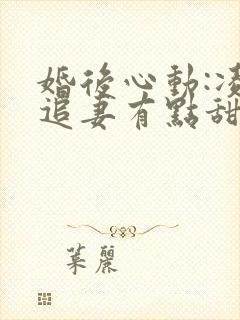 婚後心動:凌
追妻有點甜
葉麗